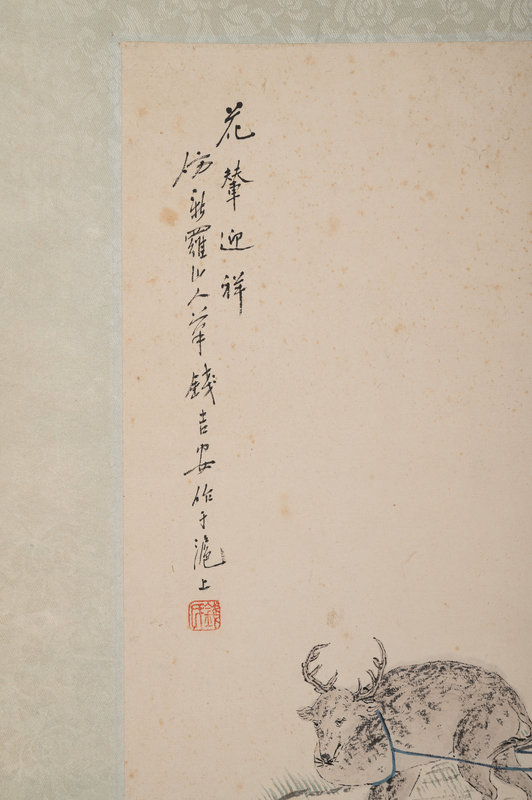 花輦迎祥
仿新羅山人筆錢吉安作于滬上